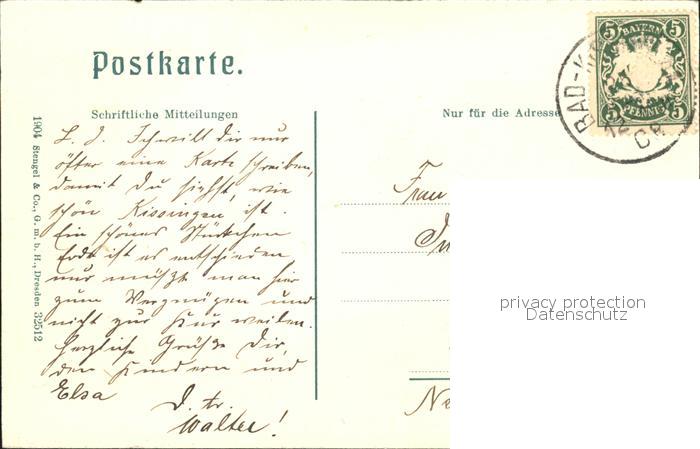 Postkarte.
5 BAYERN 5
5 PFENNIG 5
BAD-K
12
Schriftliche Mitteilungen
Nur für die Adresse
L. J. Ich will dir nur
öfter eine Karte schreiben,
damit du siehst, wie
schön Kissingen ist.
Ein schönes Stückchen
Erde ist es entschieden
nur müßte man hier
zum Vergnügen und
nicht zur Kur weilen.
Herzliche Grüße Dir,
den Kindern und
Elsa
D. tr.
Walter!
Frau
1904 Stengel & Co., G. m. b. H., Dresden 32512
privacy protection
Datenschutz